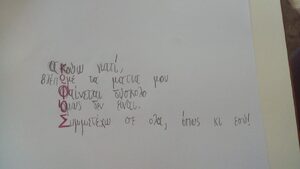 αΚούω γιατί,
βλέπΩ με τα ματια μου
Φαίνεται δύσκολο
Όμως δεν είναι.
Συμμετέχω σε όλα, όπως κι εσυ!